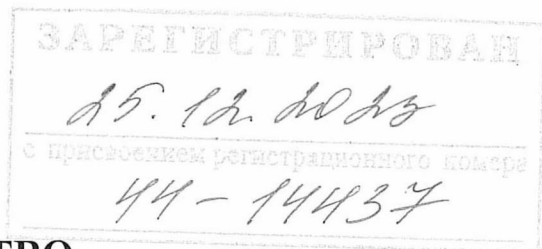 ЗАРЕГИСТРИРОВАН
25.12.2023
с присвоением регистрационного номера
44-14437
ТВО